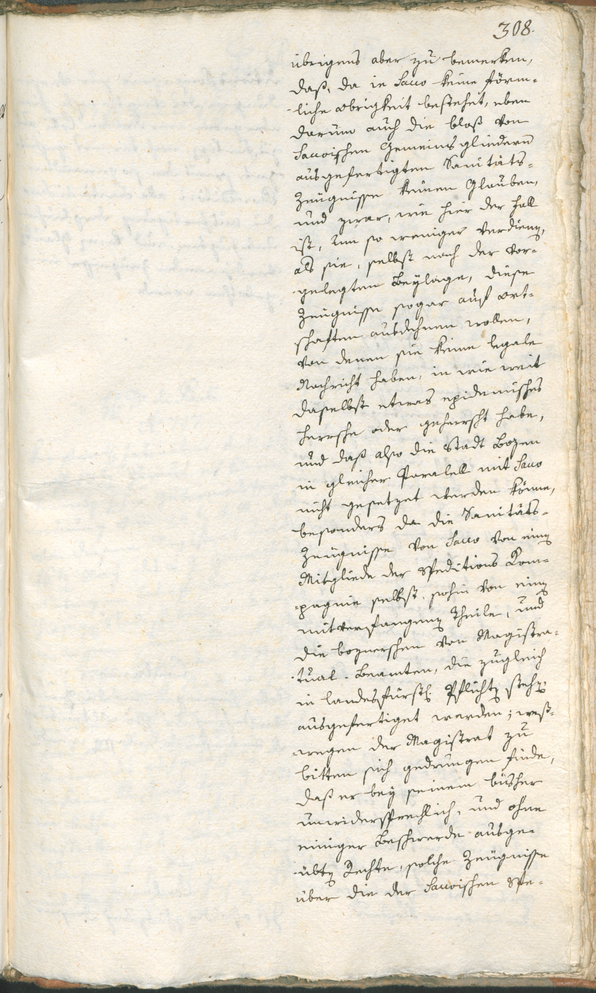 308.
übrigens aber zu bemerken,
daß, da in Sacco keine förm-
liche Obrigkeit bestehet, eben
darum auch die bloß von
Saccoischen Gemeinsgliedern
ausgefertigten Sanitäts-
Zeugnisse keinen Glauben,
und zwar, wie hier der Fall
ist, um so weniger verdienen,
als sie, selbst nach der vor-
gelegten Beylage, diese
Zeugnisse sogar auf Ort-
schaften ausdehnen wollen,
von denen sie keine legale
Nachricht haben, in wie weit
daselbst etwas epidemisches
herrsche oder geherrscht habe,
und daß also die Stadt Bozen
in gleicher Paralell mit Sacco
nicht gesetzet werden könne,
besonders da die Sanitäts-
Zeugnisse von Sacco von einem
Mitgliede der Speditions Kom-
pagnie selbst, sohin von einem
mitverfangenen Theile, und
die boznerschen von Magistra-
tual-Beamten, die zugleich
in landesfürstl. Pflichten stehen,
ausgefertiget werden; weß-
wegen der Magistrat zu
bitten sich gedrungen finde,
daß er bey seinem bisher
unwidersprechlich, und ohne
einiger Beschwerde ausge-
übten Rechte, solche Zeugnisse
über die der Saccoischen Spe-